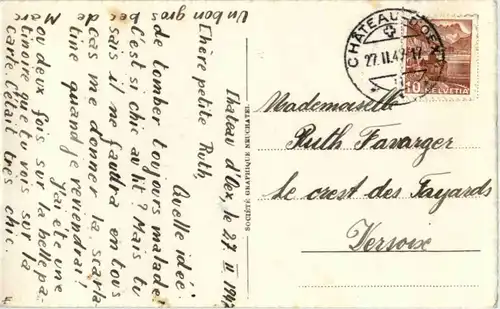 Château d'Oex, le 27 II 1942
Chère petite Ruth,
Quelle idée
de tomber toujours malade!
C'est si chic au lit? Mais tu
sais il ne faudra en tous
cas me donner la scarla-
tine quand je reviendrai!
J'ai été une
ou deux fois sur la belle pa-
tinoire que tu vois sur la
carte. C'était très chic.
Un bon gros bec de
Marc
SOCIÉTÉ GRAPHIQUE NEUCHATEL
CHÂTEAU-D'OEX
27.II.42.17
10 HELVETIA
Mademoiselle
Ruth Favarger
Le crest des Fayards
Versoix